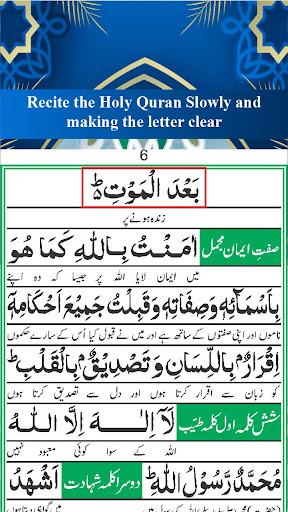 Recite the Holy Quran Slowly and
making the letter clear
6
بَعْدَ الْمَوْتِ ؕ
زندہ ہونے پر
صفتِ ایمان مجمل اٰمَنْتُ بِاللّٰهِ كَمَا هُوَ
میں ایمان لایا اللہ پر جیسا کہ وہ اپنے
بِاَسْمَآئِهٖ وَصِفَاتِهٖ وَقَبِلْتُ جَمِيْعَ اَحْكَامِهٖ
ناموں اور اپنی صفتوں کے ساتھ ہے اور میں نے قبول کیا اُس کے سارے حکموں
اِقْرَارٌۢ بِاللِّسَانِ وَتَصْدِيْقٌۢ بِالْقَلْبِ ؕ
کو زبان سے اقرار کرتا ہوں اور دل سے تصدیق کرتا ہوں
شش کلمہ اول کلمہ طیّب لَاۤ اِلٰهَ اِلَّا اللّٰهُ
اللہ کے سوا کوئی معبود نہیں
مُحَمَّدٌ رَّسُوْلُ اللّٰهِ ؕ دوسرا کلمہ شہادت اَشْهَدُ